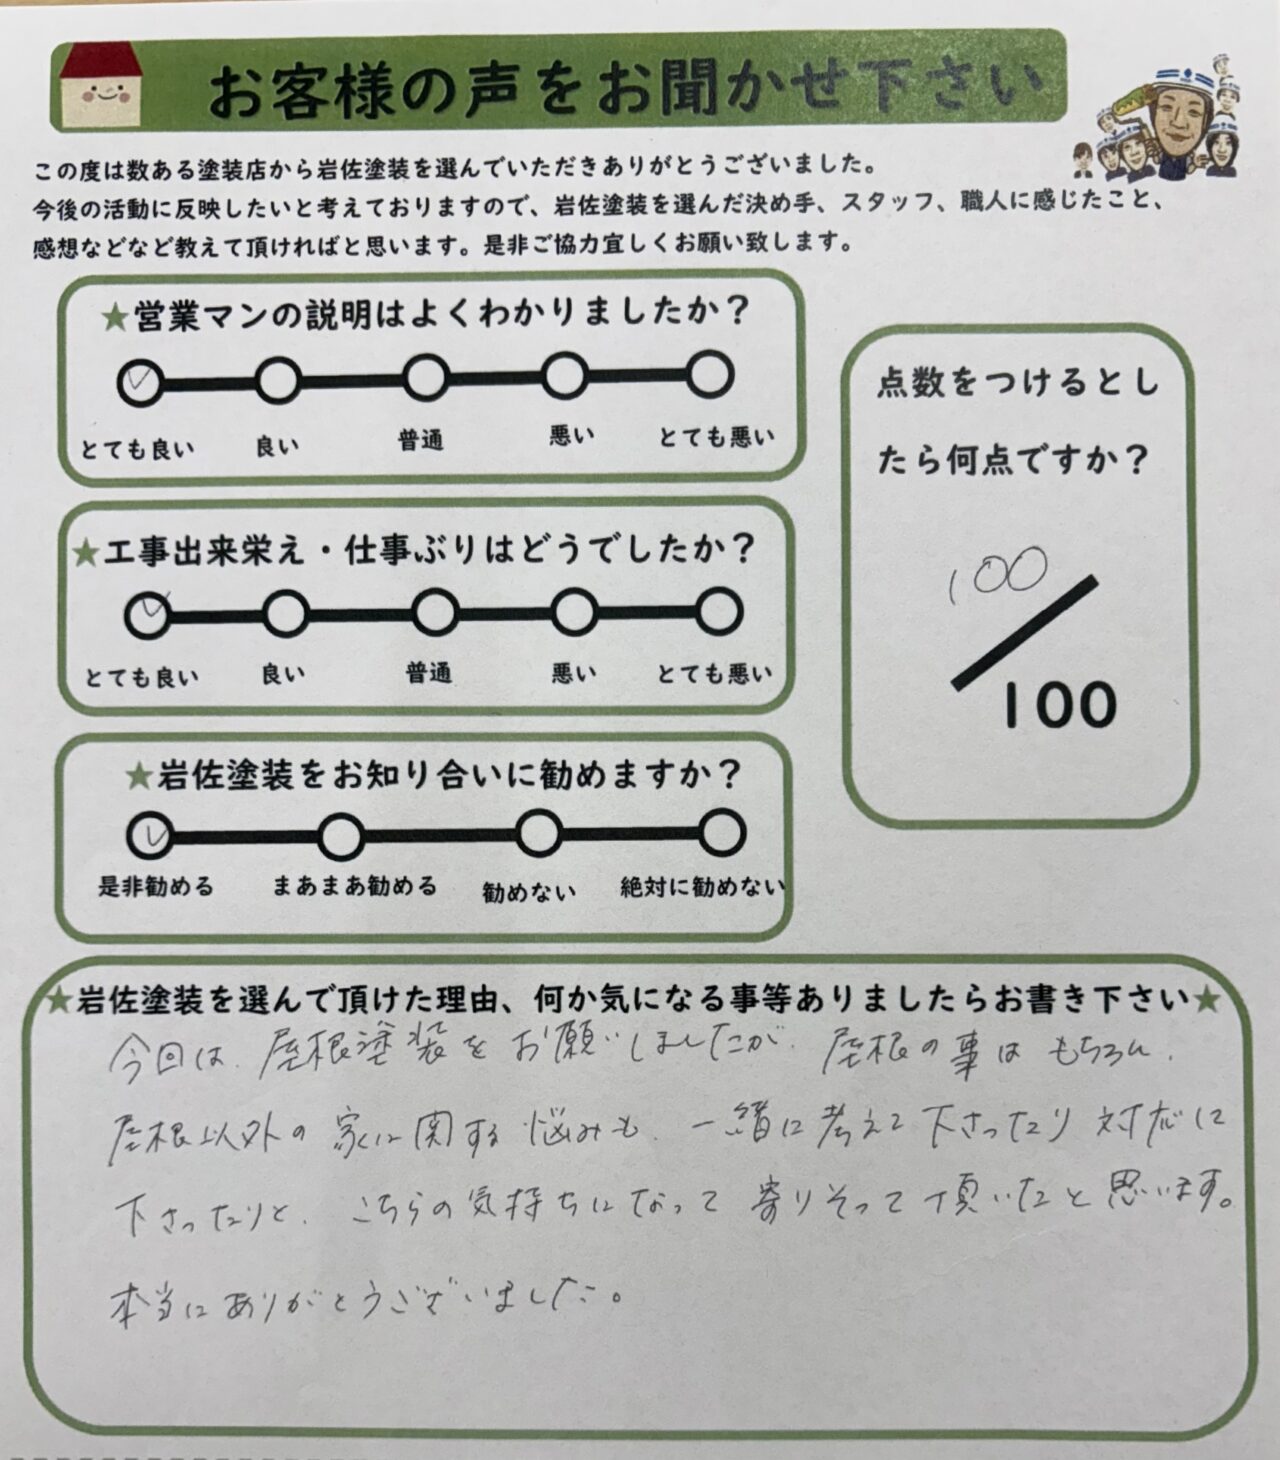 お客様の声をお聞かせ下さい
この度は数ある塗装店から岩佐塗装を選んでいただきありがとうございました。
今後の活動に反映したいと考えておりますので、岩佐塗装を選んだ決め手、スタッフ、職人に感じたこと、
感想などなど教えて頂ければと思います。是非ご協力宜しくお願い致します。
★営業マンの説明はよくわかりましたか？
とても良い 良い 普通 悪い とても悪い
★工事出来栄え・仕事ぶりはどうでしたか？
とても良い 良い 普通 悪い とても悪い
★岩佐塗装をお知り合いに勧めますか？
是非勧める まあまあ勧める 勧めない 絶対に勧めない
点数をつけるとし
たら何点ですか？
100
100
★岩佐塗装を選んで頂けた理由、何か気になる事等ありましたらお書き下さい★
今回は、屋根塗装をお願いしましたが、屋根の事はもちろん、
屋根以外の家に関する悩みも、一緒に考えて下さったり対応
下さったりと、こちらの気持ちになって寄りそって頂いたと思います。
本当にありがとうございました。